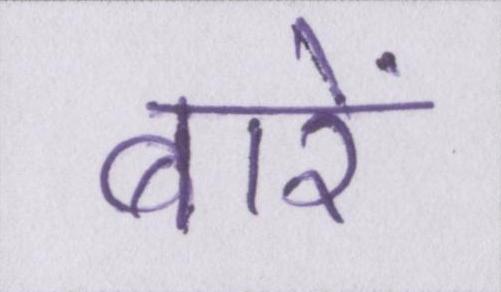 बारें